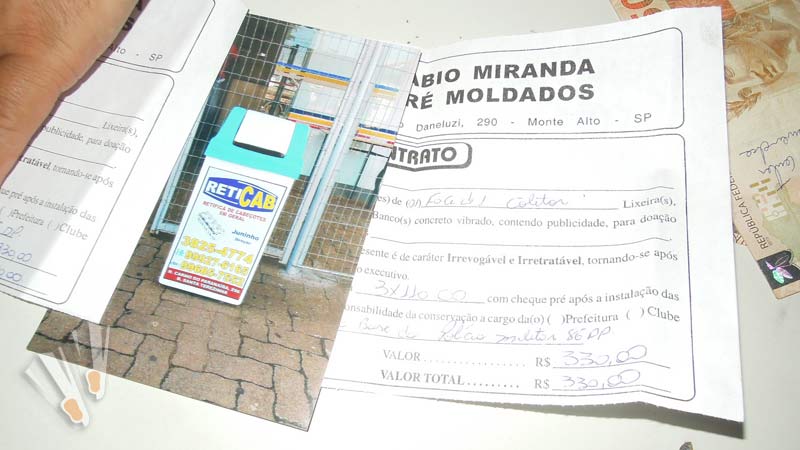 - SP
Lixeira(s),
publicidade, para doação
Irretratável, tornando-se após
cheque pré após a instalação das
( )Prefeitura ( ) Clube
330,00
RETICAB
RETÍFICA DE CABEÇOTES
EM GERAL
Juninho
3825-4774
R. CARMO DO PARANAÍBA,
B. SANTA TEREZINHA
ÁBIO MIRANDA
RÉ MOLDADOS
Daneluzi, 290 - Monte Alto - SP
NTRATO
es) de Lixeira(s),
Banco(s) concreto vibrado, contendo publicidade, para doação
esente é de caráter Irrevogável e Irretratável, tornando-se após
o executivo.
3x110,00 com cheque pré após a instalação das
onsabilidade da conservação a cargo da(o) ( )Prefeitura ( ) Clube
Base de Policia militar 86 DP
VALOR ................... R$ 330,00
VALOR TOTAL ......... R$ 330,00
REPÚBLICA FEDER